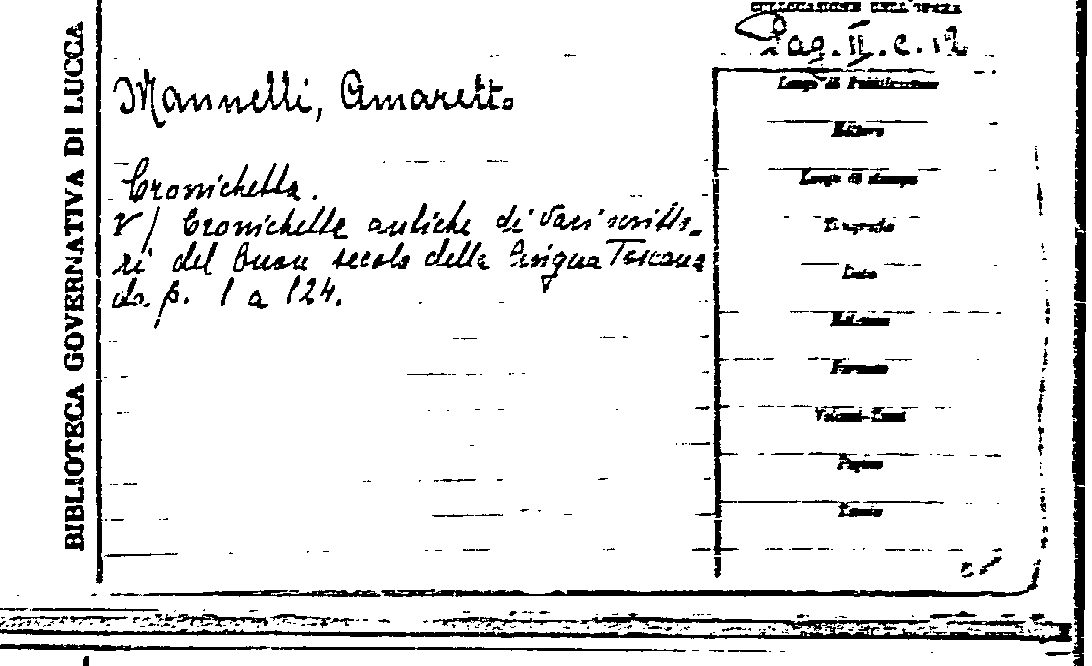 BIBLIOTECA GOVERNATIVA DI LUCCA
COLLOCAZIONE DELL'OPERA
Pag. II. c. 12
Mannelli, Amaretto
Cronichetta.
V/ Cronichette antiche di vari scritto-
ri del buon secolo della lingua Toscana
da p. 1 a 124.
Luogo di Pubblicazione
Editore
Luogo di stampa
Tipografo
Data
Edizione
Formato
Volumi-Tomi
Pagine